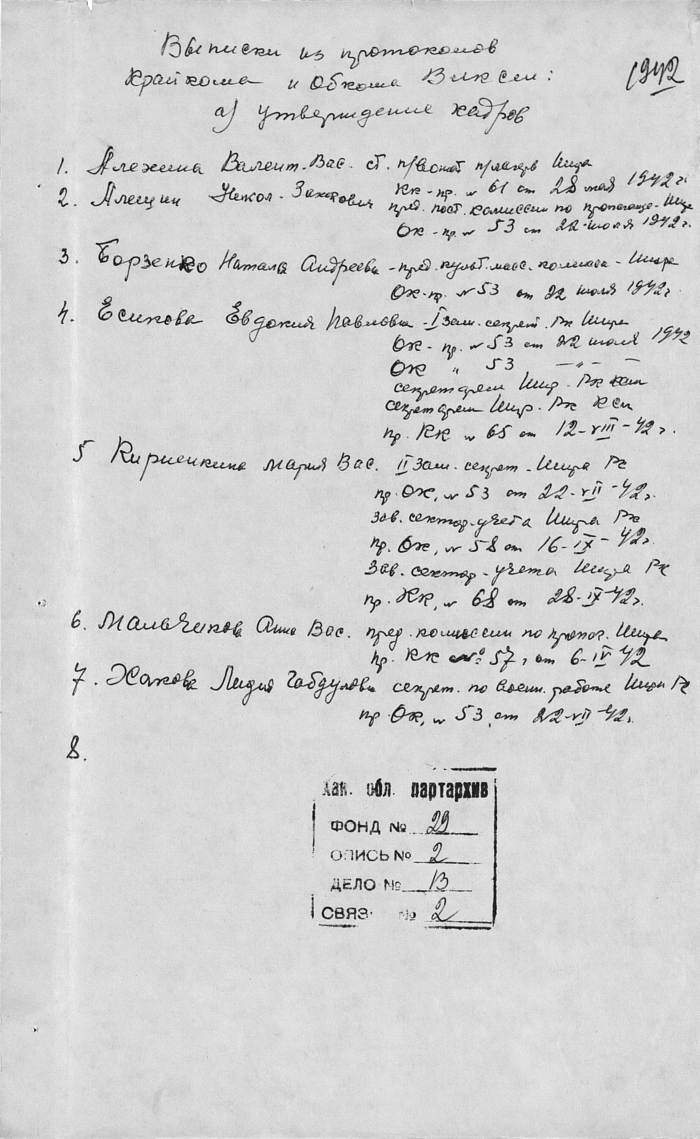 Выписки из протоколов
Крайкома и Обкома Влксм:
1942
а) утверждение кадров
1. Алехина Валент. Вас. ст. п/вожат. п/лагерь Шира
КК-пр. № 61 от 28 мая 1942 г.
2. Алешин Никол. пред. пост. комиссии по пропаганде - Шира
ОК - пр. № 53 от 22 июля 1942 г.
3. Борзенко Натала Андреевна - пред. культ. масс. комисс. - Шира
ОК-пр. № 53 от 22 июля 1942 г.
4. Есикова Евдокия Павловна - I зам. секрет. Рк Шира
ОК - пр. № 53 от 22 июля 1942
ОК " 53 — " —
секретарем Шир. Рк ксм
секретарем Шир. Рк Ксм
пр. КК № 65 от 12-VIII-42 г.
5 Кириенкина Мария Вас. II зам. секрет. Шира Рк
пр. ОК, № 53 от 22-VII-42 г.
Зав. сектор. учета Шира Рк
пр. ОК, № 58 от 16-IX-42 г.
Зав. сектор. учета Шира Рк
пр. КК, № 68 от 28-IX-42 г.
6. Мальчикова Анна Вас. пред. комиссии по пропог. Шира
пр. КК № 57, от 6-IV 42
7. Хакова Лидия Габдуловн секрет. по военн. работе Шира Рк
пр. ОК, № 53, от 22-VII-42 г.
8.
Хак. обл. партархив
ФОНД № 29
ОПИСЬ № 2
ДЕЛО № 13
СВЯЗ. № 2